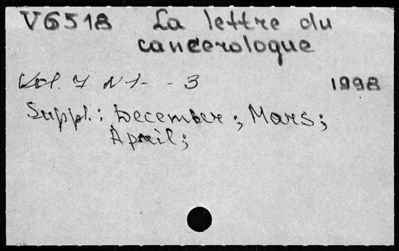 V6518 La lettre du
cancerologue
Vol. 7 N1- - 3 1998
Suppl.: December; Mars;
April;